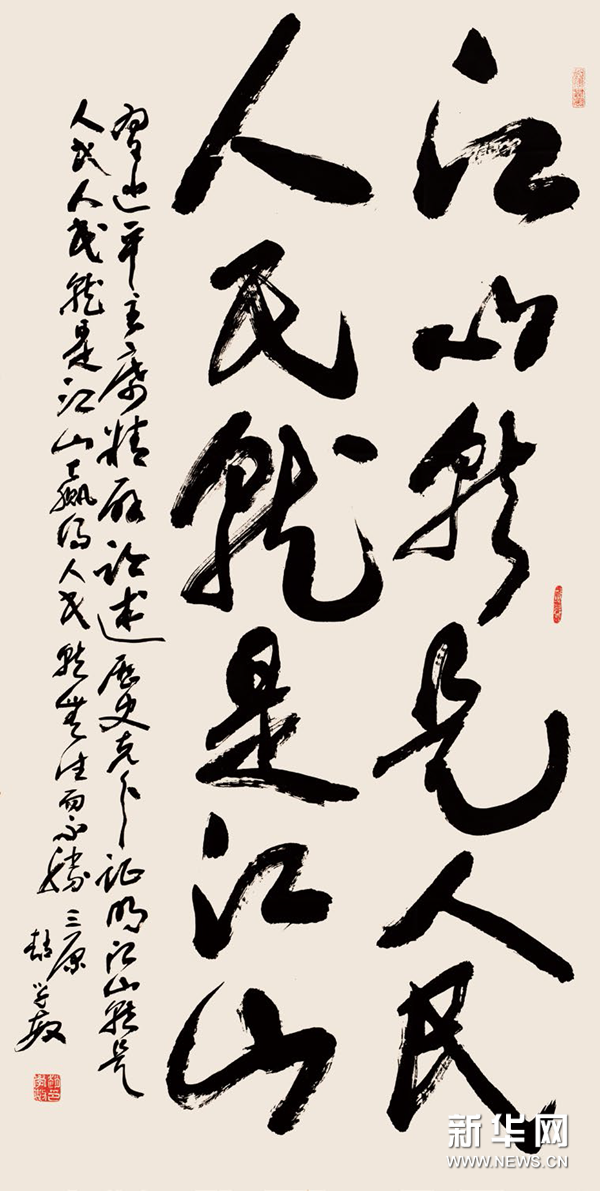 江山就是人民
人民就是江山
习近平主席精辟论述历史充分证明江山就是
人民人民就是江山赢得人民就无往而不胜 三原
赵学敏
新华网
WWW.NEWS.CN